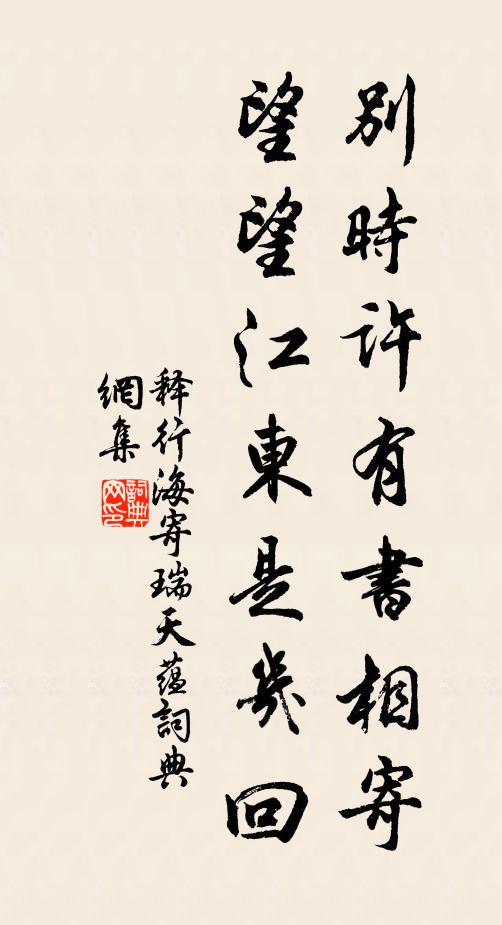 別時許有書相寄
望望江東是幾回
释行海寄瑞天蕴詞典
網集
詞典網印